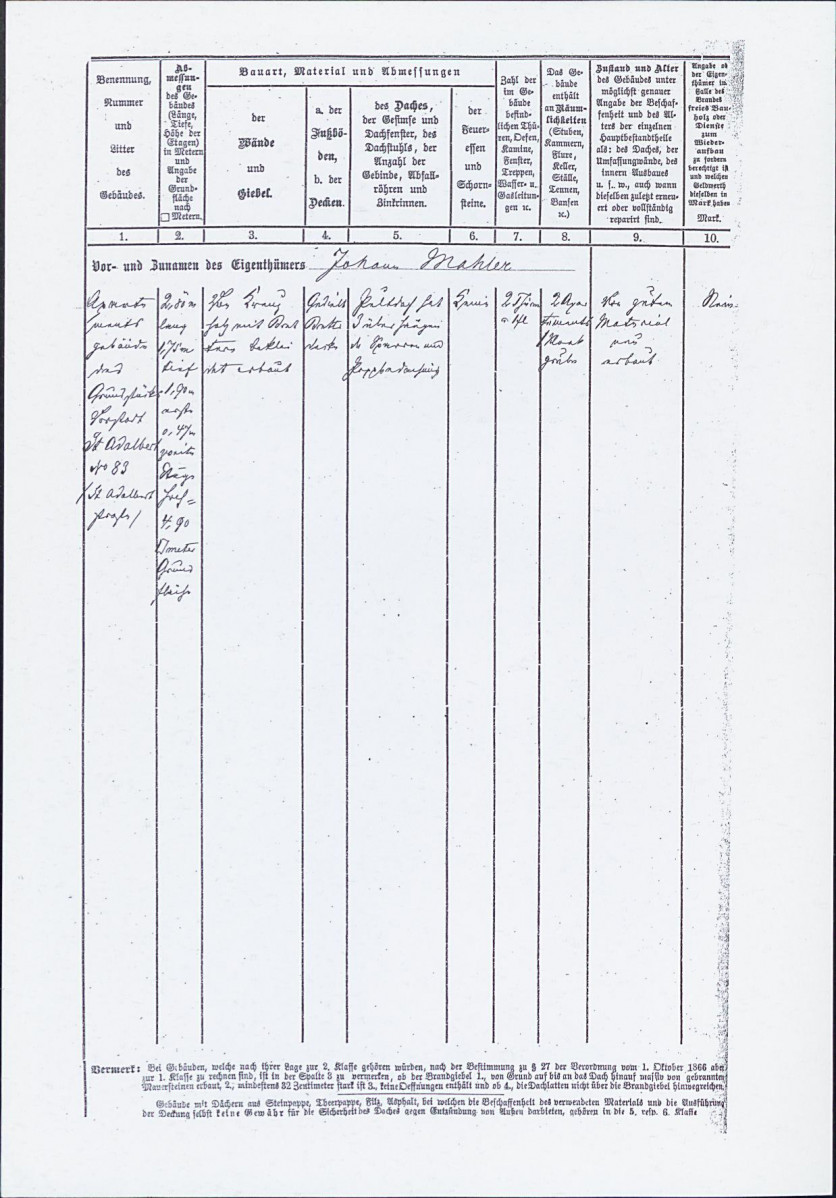 Benennung,
Nummer
und
Litter
des
Gebäudes.
Ab-
messun-
gen
des Ge-
bäudes
(Länge,
Tiefe,
Höhe der
Etagen)
in Metern
und
Angabe
der
Grund-
fläche
nach
□ Metern.
Bauart, Material und Abmessungen
der
Wände
und
Giebel.
a. der
Fußbö-
den,
b. der
Decken.
des Daches,
der Gesimse und
Dachfenster, des
Dachstuhls, der
Anzahl der
Gebinde, Abfall-
röhren und
Zinkrinnen.
der
Feuer-
essen
und
Schorn-
steine.
Zahl der
im Ge-
bäude
befind-
lichen Thü-
ren, Oefen,
Kamine,
Fenster,
Treppen,
Wasser- u.
Gasleitun-
gen ꝛc.
Das Ge-
bäude
enthält
an Räum-
lichkeiten
(Stuben,
Kammern,
Flure,
Keller,
Ställe,
Tennen,
Bansen
ꝛc.)
Zustand und Alter
des Gebäudes unter
möglichst genauer
Angabe der Beschaf-
fenheit und des Al-
ters der einzelnen
Hauptbestandtheile
als: des Daches, der
Umfassungswände, des
innern Ausbaues
u. s. w., auch wann
dieselben zuletzt erneu-
ert oder vollständig
reparirt sind.
Angabe ob
der Eigen-
thümer im
Falle des
Brandes
freies Bau-
holz oder
Dienste
zum
Wieder-
aufbau
zu fordern
berechtigt ist
und welchen
Geldwerth
dieselben in
Mark haben
Mark.
1. 2. 3. 4. 5. 6. 7. 8. 9. 10.
Vor- und Zunamen des Eigenthümers Johann Mahler
Apparte
ments
gebäude
des
Grundstücks
Vorstadt
St Adalbert
No 83
/St Adalbert
straße/
2,80 m
lang
1,75 m
tief
1,90 m
erste
0,47 m
zweite
Etage
hoch =
4,90
□ meter
Grund
fläche
Von Kreuz
holz mit Bret
tern beklei
det erbaut
Gedielt
Bretter
decke
Pultdach hat
3 überhängen
de Sparren und
Pappbedachung
Keine
2 Thüren
2 Appar
tements
1 Kloak
grube
Von gutem
Material
neu
erbaut
Nein.
Vermerk: Bei Gebäuden, welche nach ihrer Lage zur 2. Klasse gehören würden, nach der Bestimmung zu § 27 der Verordnung vom 1. Oktober 1866 aber
zur 1. Klasse zu rechnen sind, ist in der Spalte 3 zu vermerken, ob der Brandgiebel 1., von Grund auf bis an das Dach hinauf massiv von gebrannten
Mauersteinen erbaut, 2., mindestens 32 Zentimeter stark ist 3., keine Oeffnungen enthält und ob 4., die Dachlatten nicht über die Brandgiebel hinwegreichen.
Gebäude mit Dächern aus Steinpappe, Theerpappe, Filz, Asphalt, bei welchen die Beschaffenheit des verwendeten Materials und die Ausführung
der Deckung selbst keine Gewähr für die Sicherheit des Daches gegen Entzündung von Außen darbieten, gehören in die 5. resp. 6. Klasse